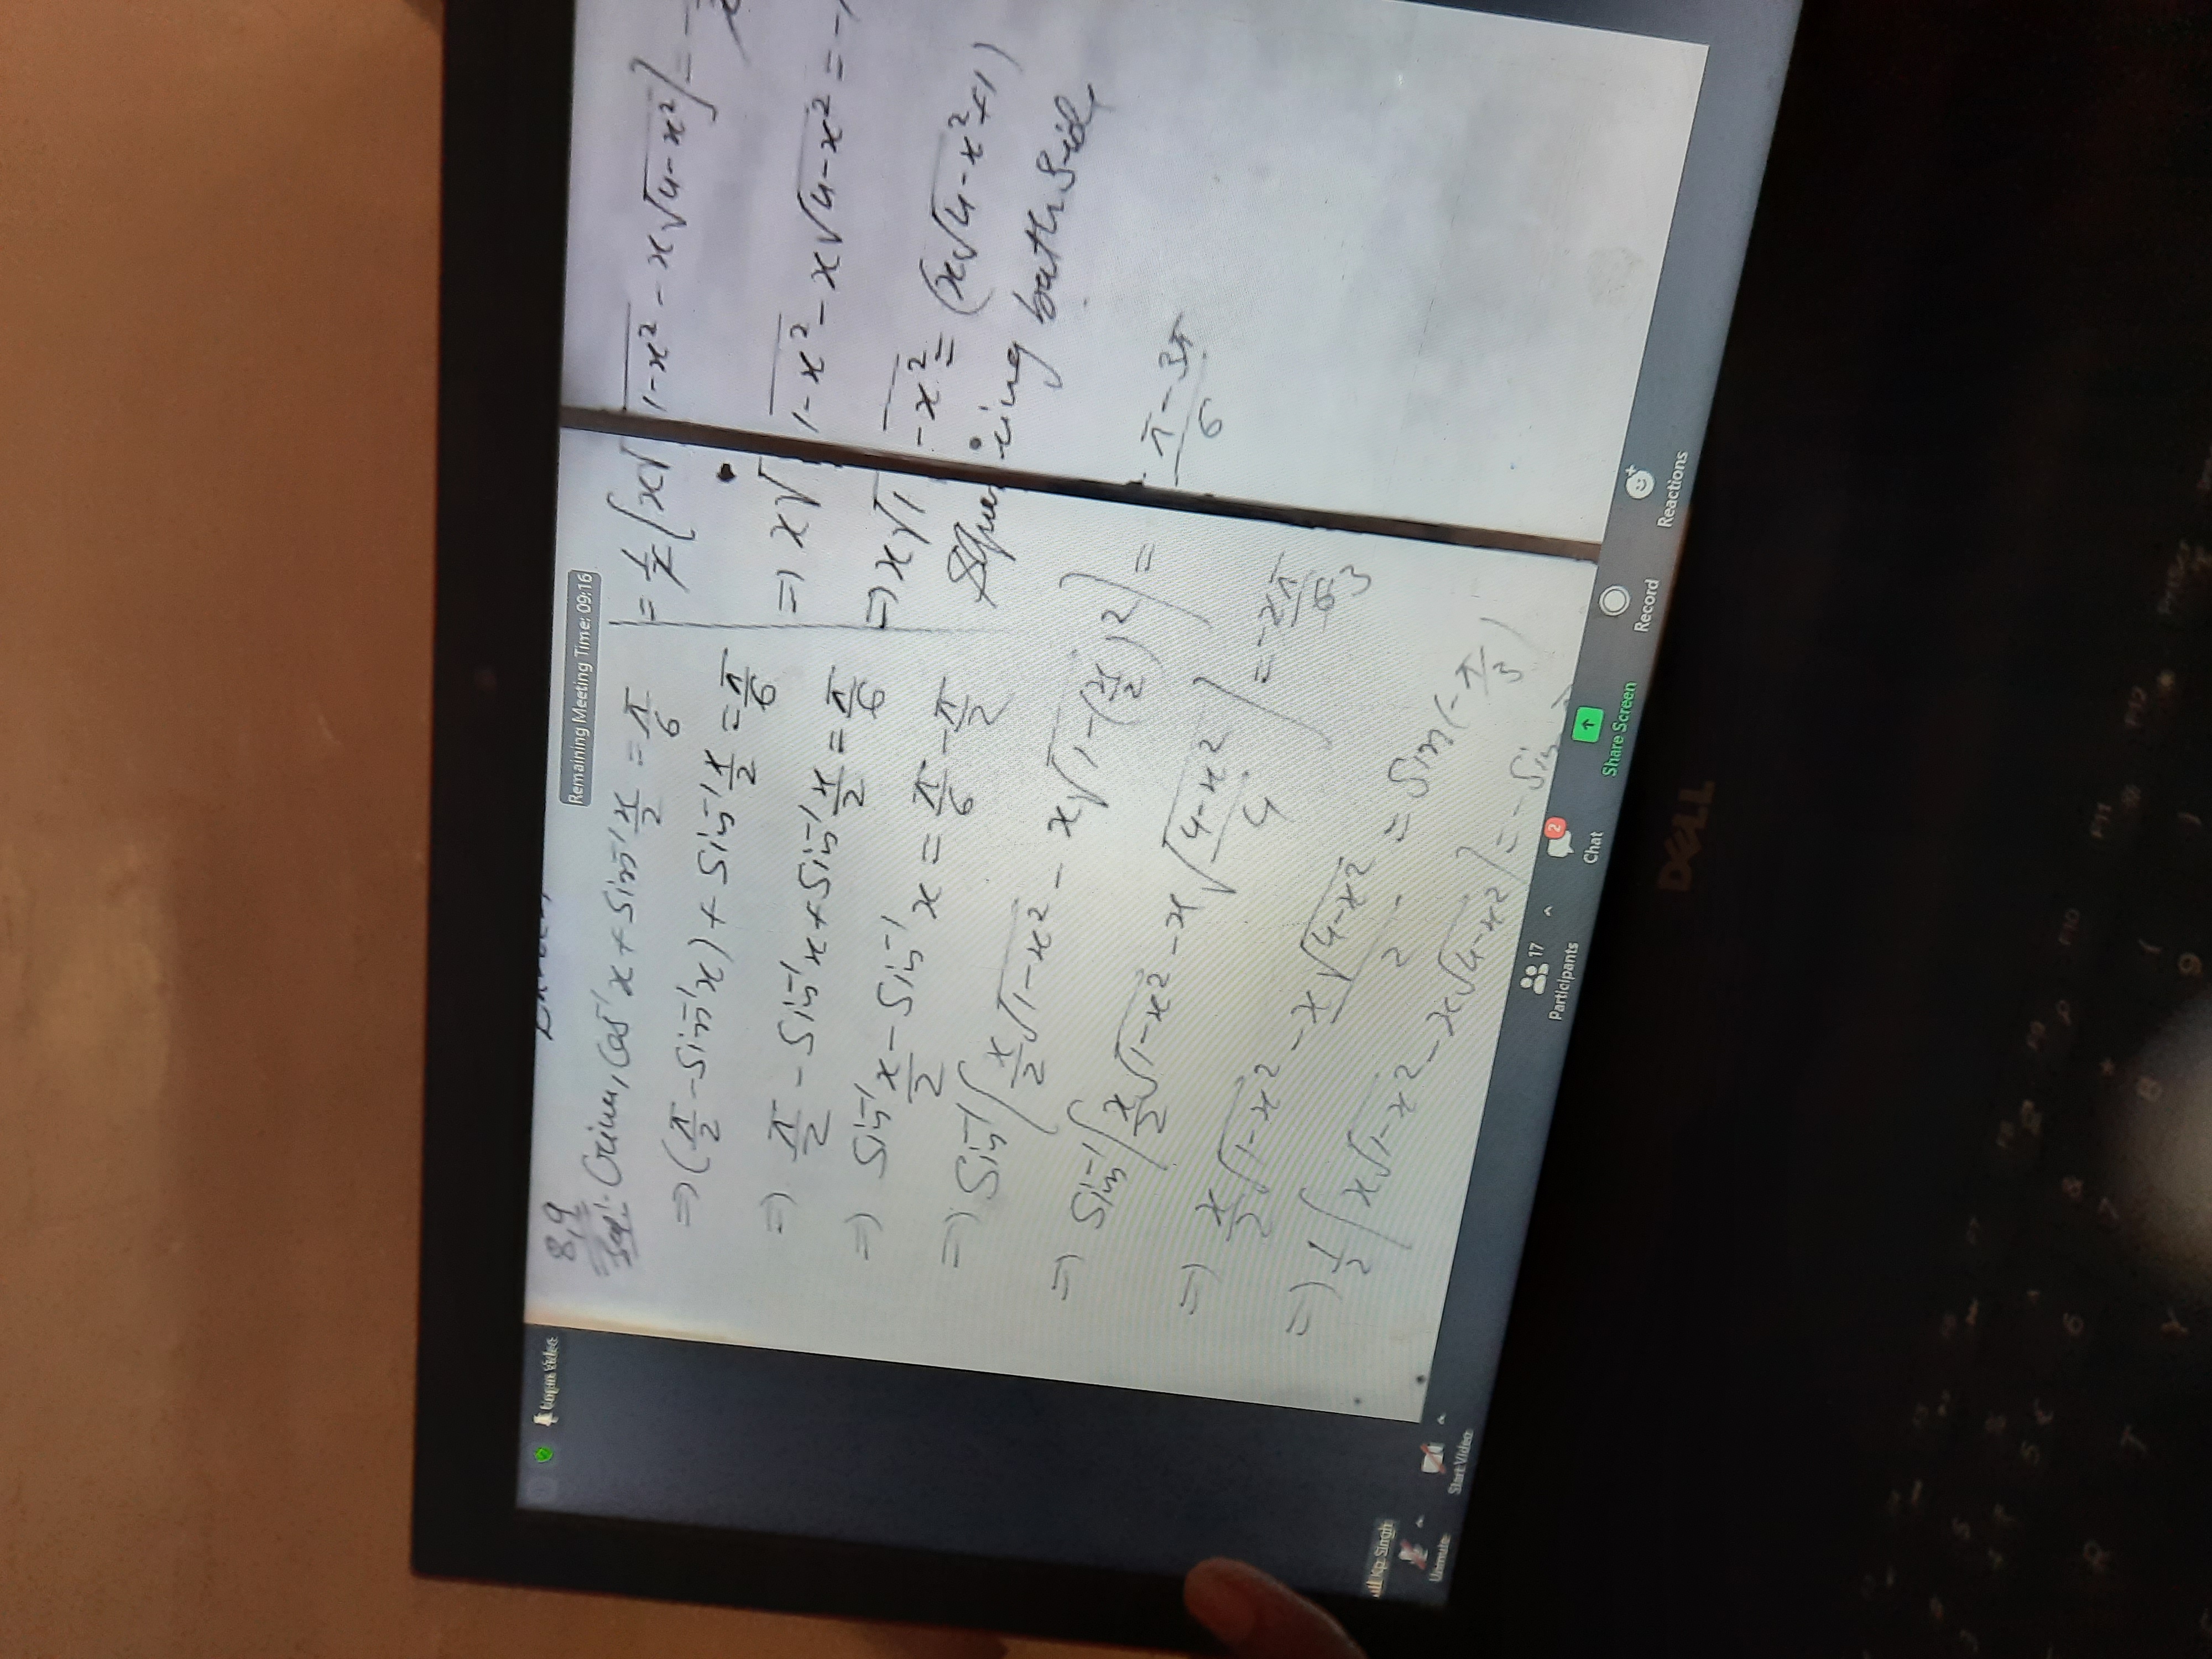 Remaining Meeting Time: 09:16
8,9
Sol': Given, Cos⁻¹x + Sin⁻¹ x/2 = π/6
⇒ (π/2 - Sin⁻¹x) + Sin⁻¹ x/2 = π/6
⇒ π/2 - Sin⁻¹x + Sin⁻¹ x/2 = π/6
⇒ Sin⁻¹ x/2 - Sin⁻¹ x = π/6 - π/2
⇒ Sin⁻¹ [x/2 √1-x² - x √1-(x/2)²] = π-3π/6
⇒ Sin⁻¹ [x/2 √1-x² - x √4-x²/4] = -2π/6 3
⇒ x/2 √1-x² - x√4-x²/2 = Sin(-π/3)
⇒ 1/2 [x√1-x² - x√4-x²] = - Sin
= 1/2 [x√1-x² - x√4-x²] = -
⇒ x√1-x² - x√4-x² = -
⇒ x√1-x² = (x√4-x²+1)
Squaring bath Side
Kp Singh
Unmute
Start Video
17
Participants
2
Chat
Share Screen
Record
Reactions
DELL